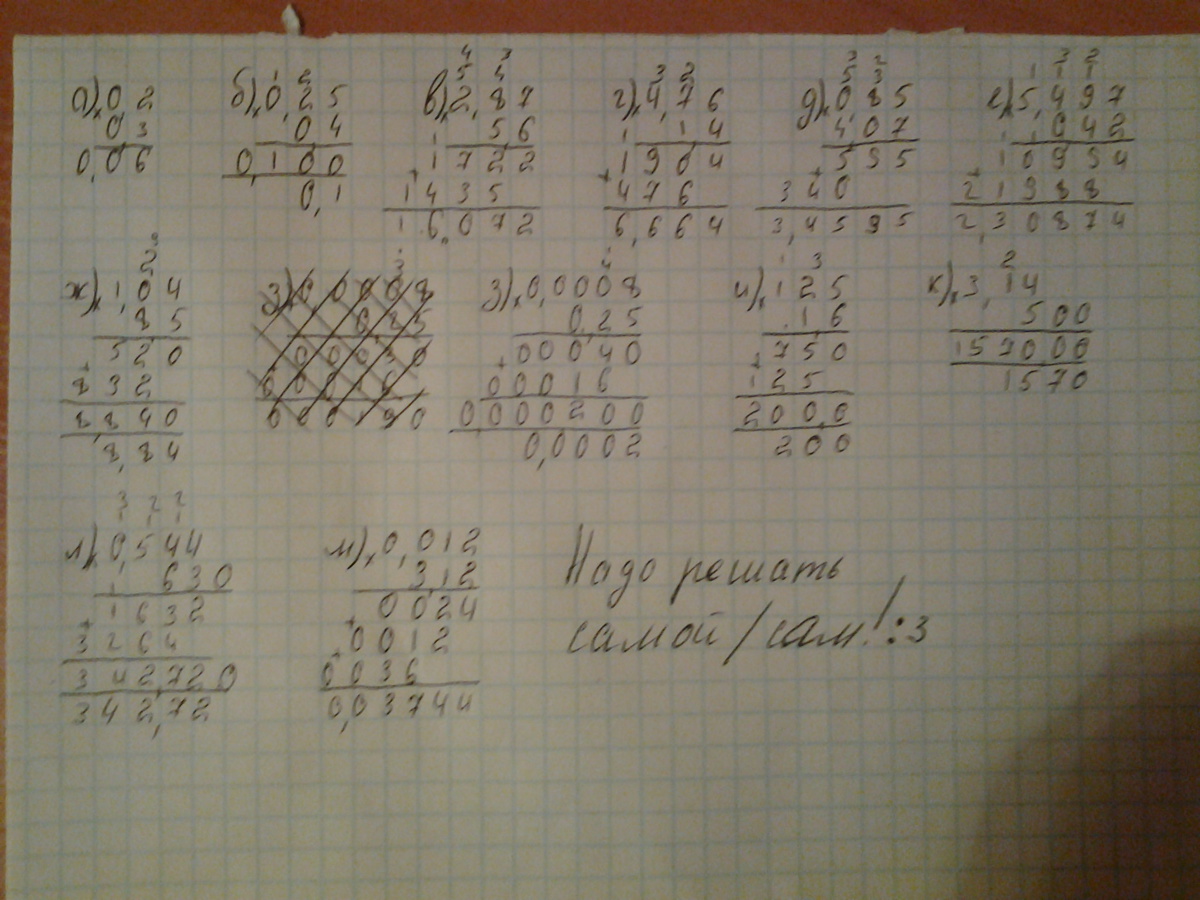 а) × 0,2 б) × 0,25 в) × 2,87 г) × 4,76 д) × 0,85 е) × 5,497
0,3 0,4 5,6 1,4 4,07 0,42
0,06 0,100 1722 1904 595 10994
0,1 1435 476 340 21988
16,072 6,664 3,4595 2,30874
ж) × 1,04 з) × 0,0008 и) × 125 к) × 3,14
8,5 0,25 1,6 500
520 00040 750 157000
832 00016 125 1570
8,840 0,000200 200,0
8,84 0,0002 200
л) × 0,544 м) × 0,012
630 3,12
1632 0024
3264 0012
342,720 0036
342,72 0,03744
Надо решать
самой/сам! :3